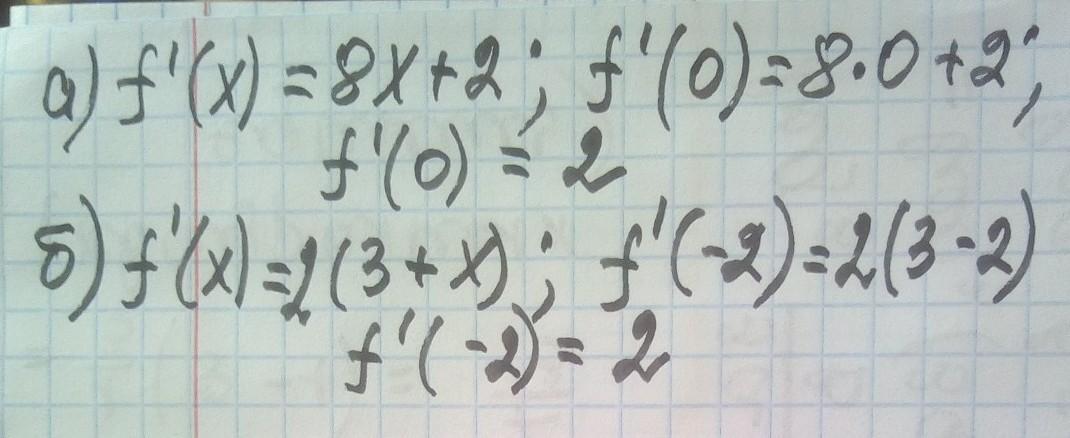 а) f'(x) = 8x + 2 ; f'(0) = 8 · 0 + 2 ;
f'(0) = 2
б) f'(x) = 2(3 + x) ; f'(-2) = 2(3 - 2)
f'(-2) = 2